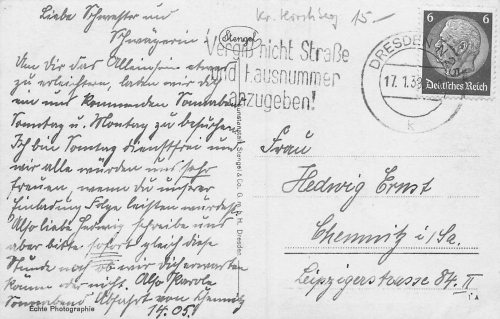 Liebe Schwester und
Schwägerin!
Um Dir das Alleinsein etwas
zu erleichtern, laden wir Dich
ein uns kommenden Sonnabend
Sonntag u. Montag zu besuchen.
Ich bin Sonntag dienstfrei und
wir alle würden uns sehr
freuen, wenn du unserer
Einladung Folge leisten würdest.
Also liebe Hedwig schreibe uns
aber bitte sofort gleich diese
Stunde noch ob wir dich erwarten
können oder nicht. Also Parole
Sonnabend Abfahrt von Chemnitz
14.05.
Echte Photographie
Stengel
Kunstanstalt Stengel & Co. G.m.b.H., Dresden
15-
Vergiß nicht Straße
und Hausnummer
anzugeben!
DRESDEN
17.1.39
k
6 6
Deutsches Reich
Frau
Hedwig Ernst
Chemnitz i/Sa.
Leipzigerstrasse 84 II